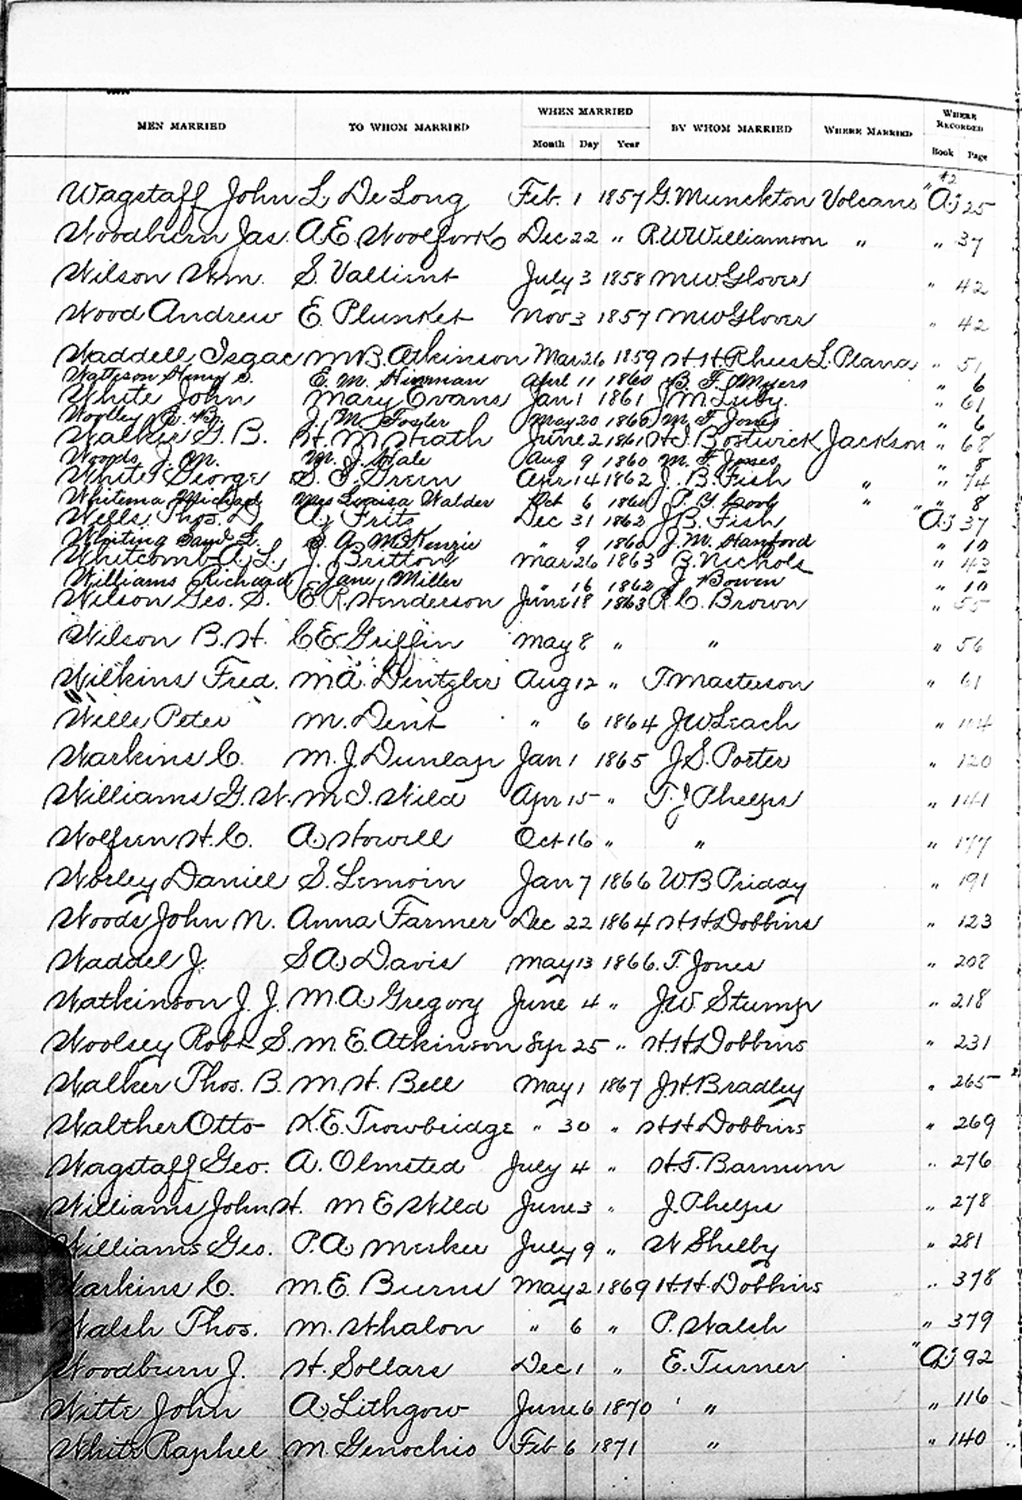 MEN MARRIED TO WHOM MARRIED WHEN MARRIED BY WHOM MARRIED WHERE MARRIED WHERE RECORDED
Month Day Year Book Page
Wagstaff John L De Long Feb. 1 1857 G. Munckton Volcano " A 25
Woodburn Jas. A.E. Woolfork Dec 22 " R.W. Williamson " " 37
Wilson Wm. S. Vallient July 3 1858 M W Glover " 42
Wood Andrew E. Plunket Nov 3 1857 M W Glover " 42
Waddell Isaac M B. Atkinson Mar 26 1859 H. H. Rhees L. Plana " 51
Watteson Henry S. E. M. Hinman April 11 1860 B. F. Myers " 6
White John Mary Evans Jan 1 1861 J M. Luby. " 61
Woolley J. M. Foster May 20 1860 M. F. Jones " 6
Walker G. B. H. M Heath June 2 1861 H. J. Bostwick Jackson " 68
Woods J. M. M. J. Hale Aug 9 1860 M. F. Jones " 8
White George S. J. Green Apr 14 1862 J. B. Fish " " 74
Whitema Michael Mrs Louisa Walder Oct 6 1860 " " 8
Wells, Thos. D. A. Frits Dec 31 1862 J. B. Fish A 37
Whiting L. S. A. McKenzie " 9 1860 J. W. Stanford " 10
Whitcomb A. L. J. Britton Mar 26 1863 B. Nichols " 43
Williams Richard Jane Miller " 16 1862 J. Bowen " 10
Wilson Geo. S. E. R. Henderson June 18 1863 R. C. Brown " 55
Wilson B. H. C E. Griffin May 8 " " " 56
Wilkins Fred. M A. Dentzler Aug 12 " T Masterson " 61
Wille Peter M. Dent " 6 1864 J W. Leach " 114
Warkins C. M. J. Dunlap Jan 1 1865 J. S. Porter " 120
Williams G. W. M. J. Wild Apr 15 " T. J Phelps " 141
Wolfren H. C. A. Howell Oct 16 " " " 177
Worley Daniel S. Lemoin Jan 7 1866 W. B Priday " 191
Woods John N. Anna Farmer Dec 22 1864 H H. Dobbins " 123
Waddel J. S A. Davis May 13 1866. T. Jones " 208
Watkinson J. J. M. A. Gregory June 4 " J. W. Stump " 218
Woolsey Robt. S. M. E. Atkinson Sep 25 " H. H. Dobbins " 231
Walker Thos. B. M. H. Bell May 1 1867 J. H. Bradley " 265
Walther Otto K. E. Trowbridge " 30 " H H. Dobbins " 269
Wagstaff Geo. A. Olmsted July 4 " H. T. Barnum " 276
Williams John H. M E Wild June 3 " J. Phelps " 278
Williams Geo. P. A. July 9 " W Shelby " 281
Warkins C. M. E. Burns May 2 1869 H. H. Dobbins " 378
Walsh Thos. M. Whalon " 6 " P. Walsh " 379
Woodburn J. H. Sollars Dec 1 " E. Turner " A 92
Witte John A. Lithgow June 6 1870 " " 116
White Raphel M. Genochio Feb 6 1871 " " 140